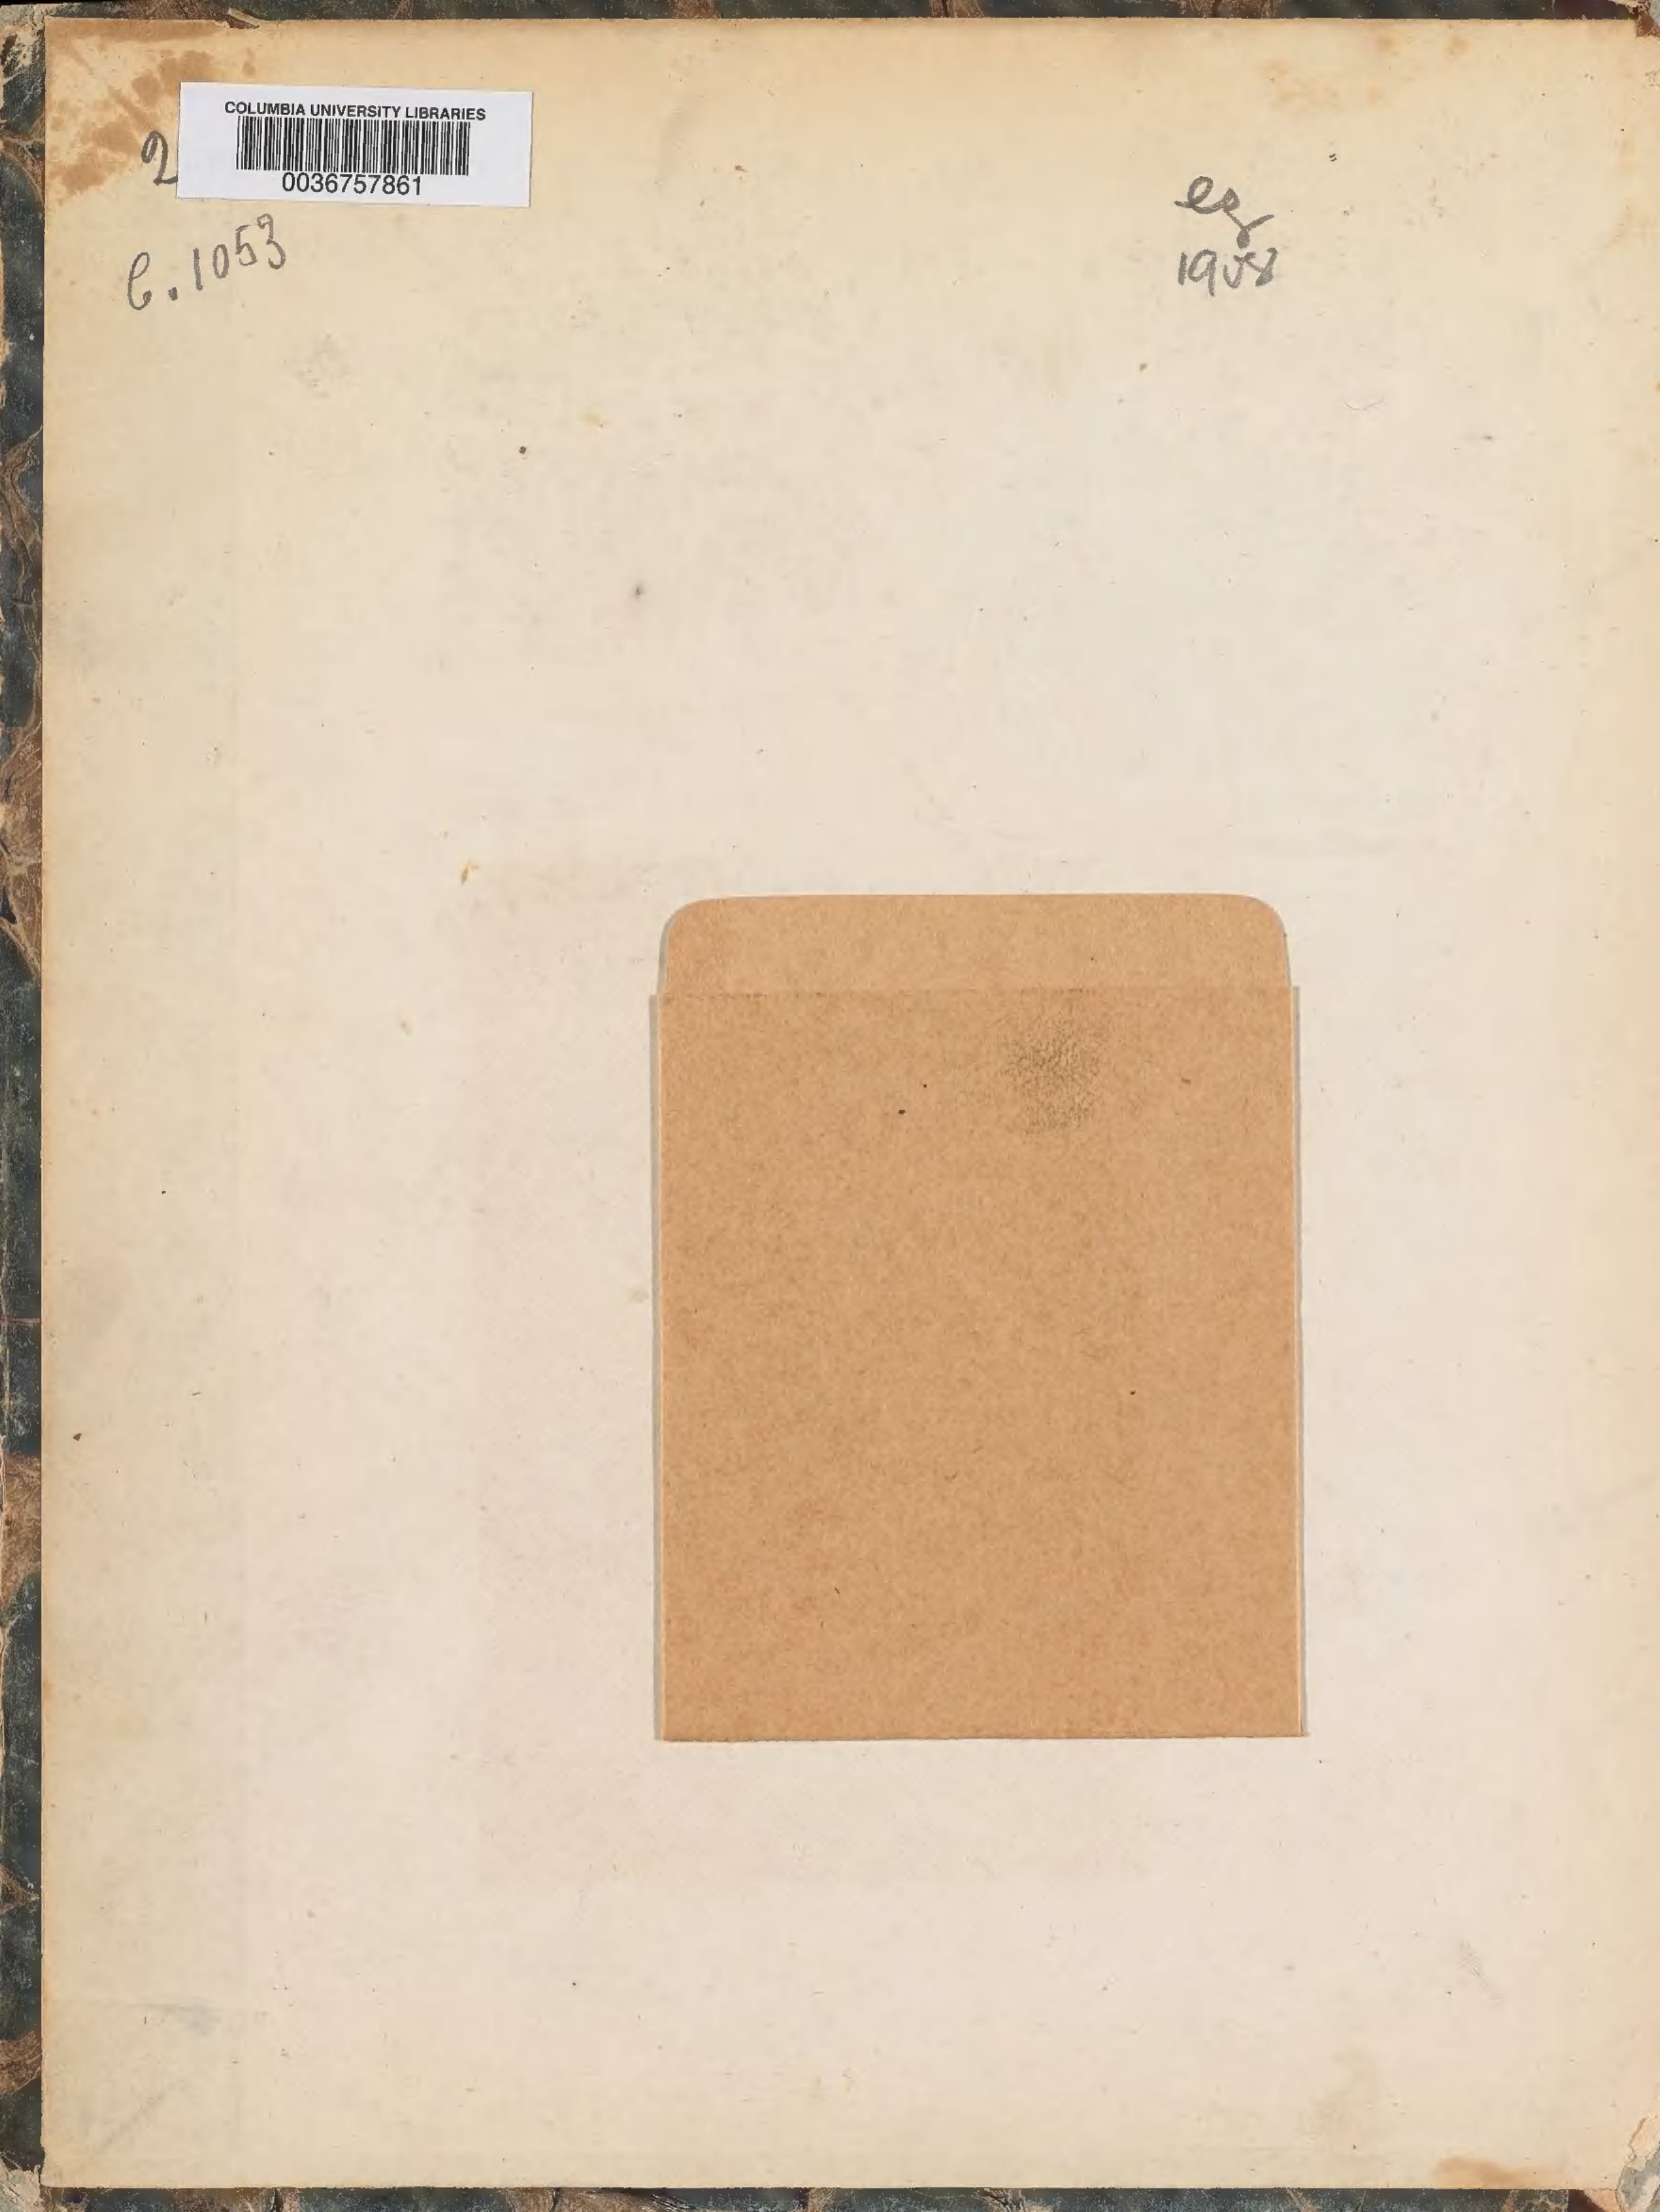 COLUMBIA UNIVERSITY LIBRARIES
0036757861
2
C.1053